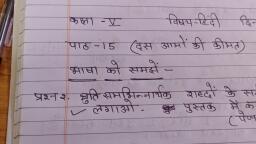 कक्षा - V विषय-हिंदी दि-
पाठ-15 (दस आमों की कीमत)
भाषा को समझें -
प्रश्न २. श्रुतिसमभिन्नार्थक शब्दों के
लगाओ. पुस्तक में क